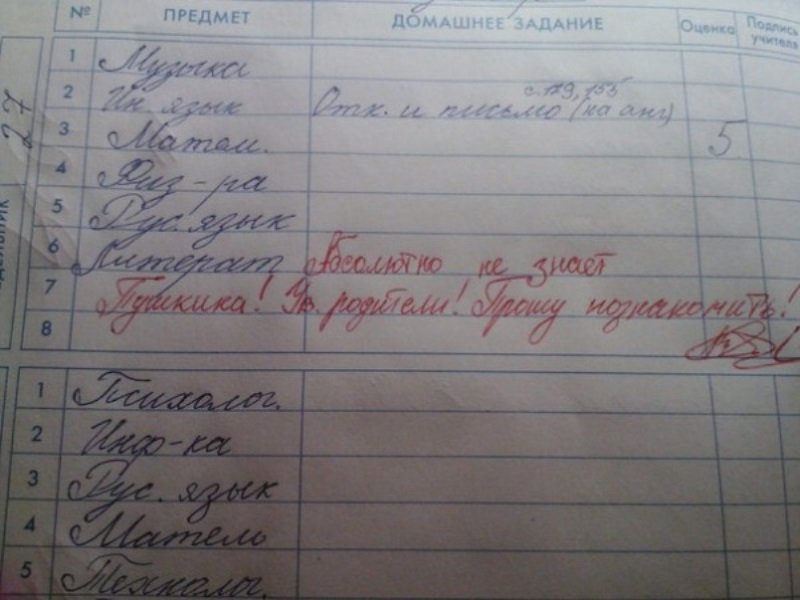 № ПРЕДМЕТ ДОМАШНЕЕ ЗАДАНИЕ Оценка Подпись учителя
27
1 Музыка
с. 129, 155
2 Ин. язык Отк. и письмо (на анг)
3 Матем. 5
4 Физ-ра
5 Рус. язык
6 Литерат Абсолютно не знает
7 Пушкина! Ув. родители! Прошу познакомить!
8
1 Психолог.
2 Инф-ка
3 Рус. язык
4 Матем
5 Технолог.